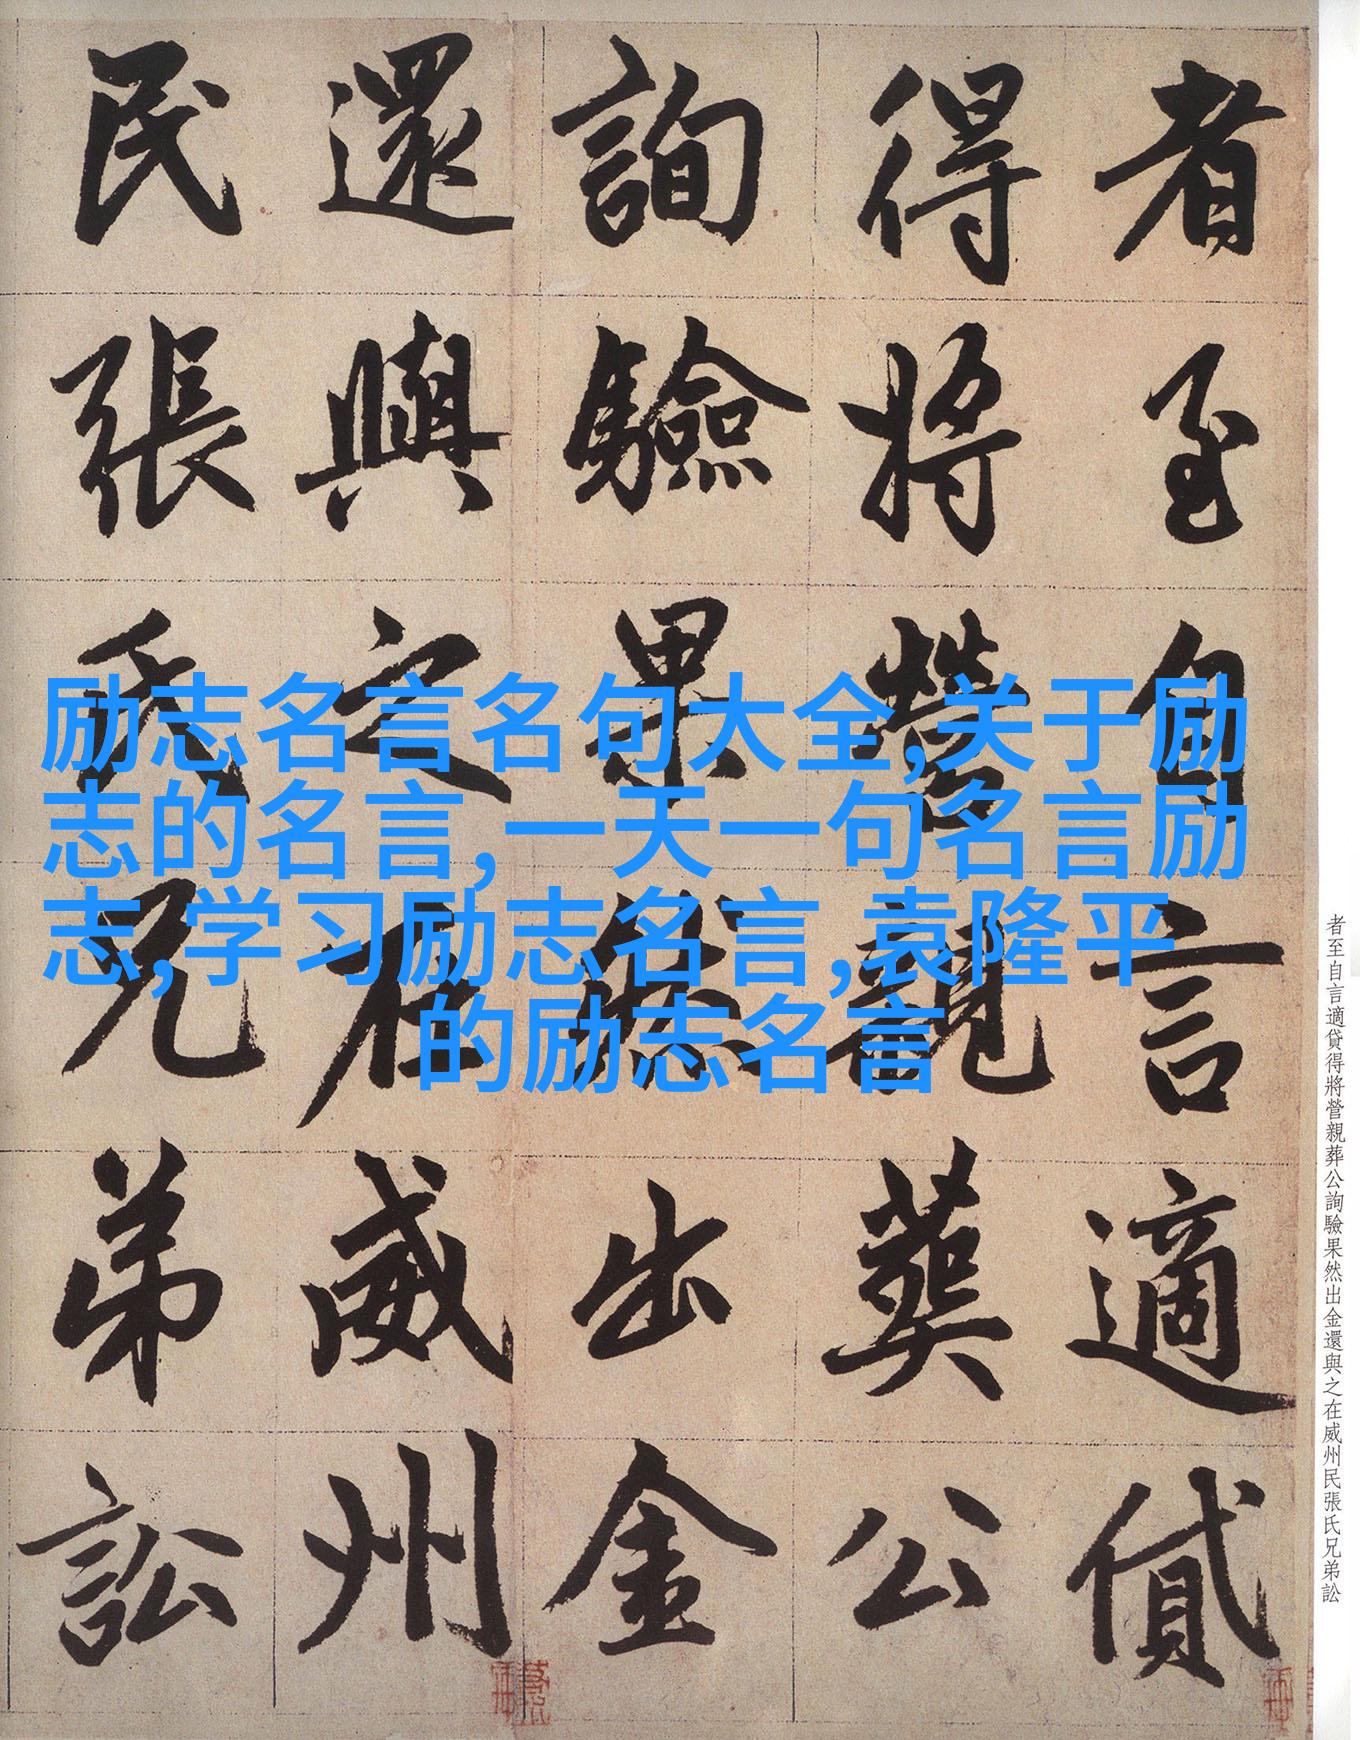 者至自言適貸
得將營親葬公
詢驗果然出金
還與之在威州
民張氏兄弟訟
励志名言名句大全,关于励
志的名言, 一天一句名言励
志,学习励志名言,袁隆平
的励志名言
者至自言適貸得將營親葬公詢驗果然出金還與之在威州民張氏兄弟訟